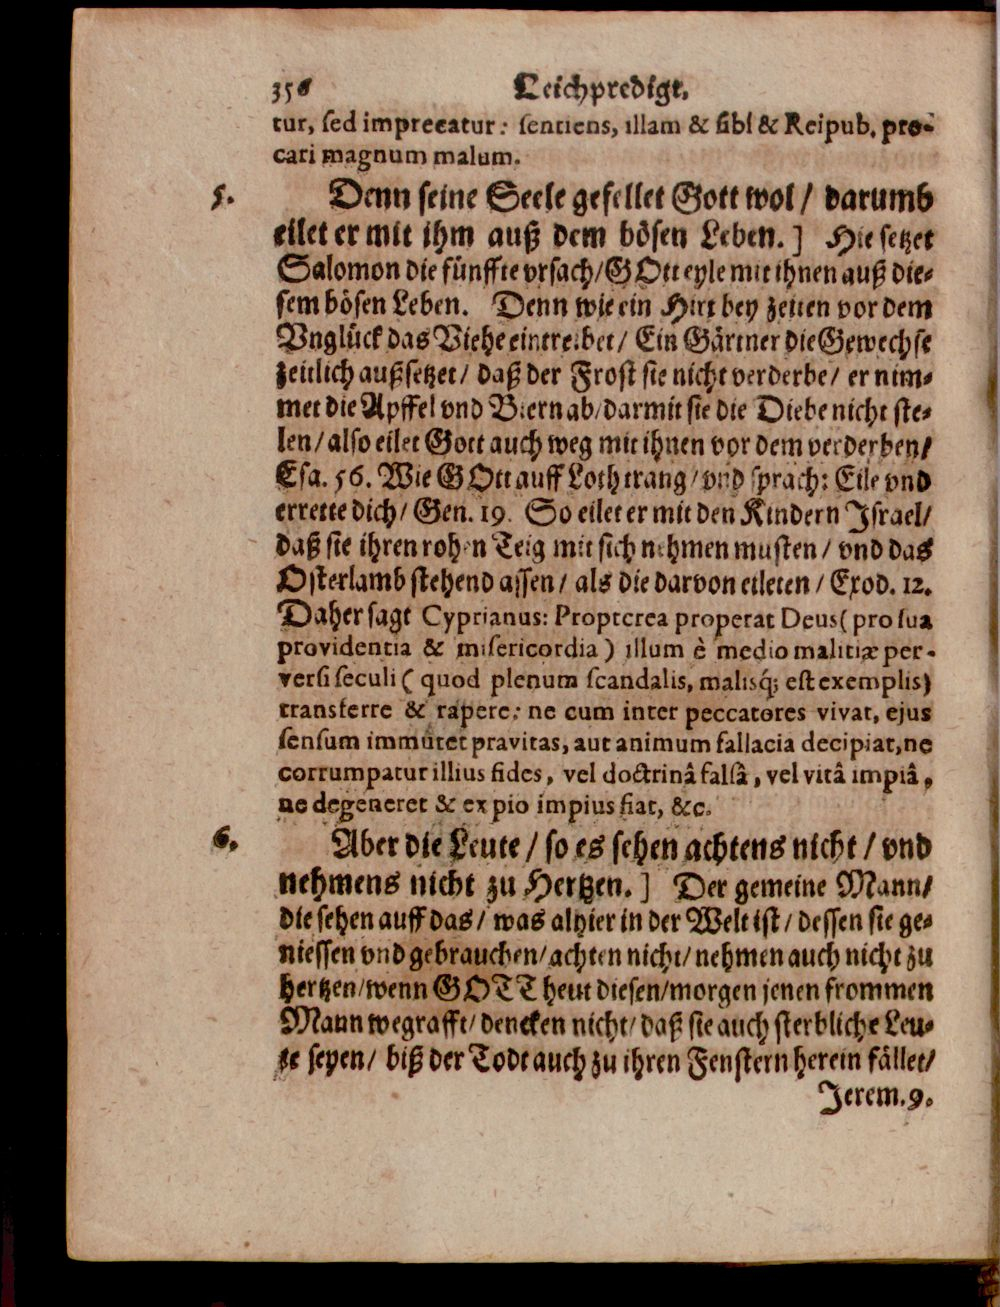 356 Leichpredigt.
tur, sed imprecatur: sentiens, illam & sibi & Reipub. pro-
cari magnum malum.
5. Denn seine Seele gefellet Gott wol / darumb
eilet er mit ihm auß dem bösen Leben. ] Hie setzet
Salomon die fünffte vrsach/GOtt eyle mit ihnen auß die-
sem bösen Leben. Denn wie ein Hirt bey zeiten vor dem
Vnglück das Viehe eintreibet / Ein Gärtner die Gewechse
zeitlich außsetzet / daß der Frost sie nicht verderbe / er nim-
met die Apffel vnd Biern ab/darmit sie die Diebe nicht ste-
len/also eilet Gott auch weg mit ihnen vor dem verderben/
Esa. 56. Wie GOtt auff Loth trang/vnd sprach: Eile vnd
errette dich/ Gen. 19. So eilet er mit den Kindern Israel/
daß sie ihren rohen Teig mit sich nehmen musten / vnd das
Osterlamb stehend assen / als die darvon eileten / Exod. 12.
Daher sagt Cyprianus: Propterea properat Deus (pro sua
providentia & misericordia) illum è medio malitiæ per-
versi seculi ( quod plenum scandalis, malisq́; est exemplis)
transferre & rapere: ne cum inter peccatores vivat, ejus
sensum immutet pravitas, aut animum fallacia decipiat, ne
corrumpatur illius fides, vel doctrinâ falsâ, vel vitâ impiâ,
ne degeneret & ex pio impius fiat, &c.
6. Aber die Leute / so es sehen achtens nicht / vnd
nehmens nicht zu Hertzen. ] Der gemeine Mann/
die sehen auff das / was alhier in der Welt ist / dessen sie ge-
niessen vnd gebrauchen/achten nicht/nehmen auch nicht zu
hertzen/wenn GOTT heut diesen/morgen jenen frommen
Mann wegrafft/ dencken nicht/ daß sie auch sterbliche Leu-
te seyen/ biß der Todt auch zu ihren Fenstern herein fället/
Jerem. 9.